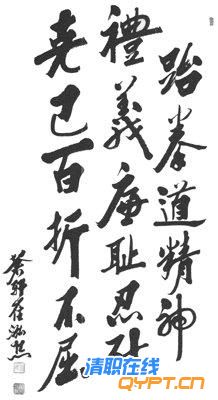 跆拳道精神
禮義廉耻忍耐
克己百折不屈
蒼軒崔泓熙
清职在线
QYPT.CN